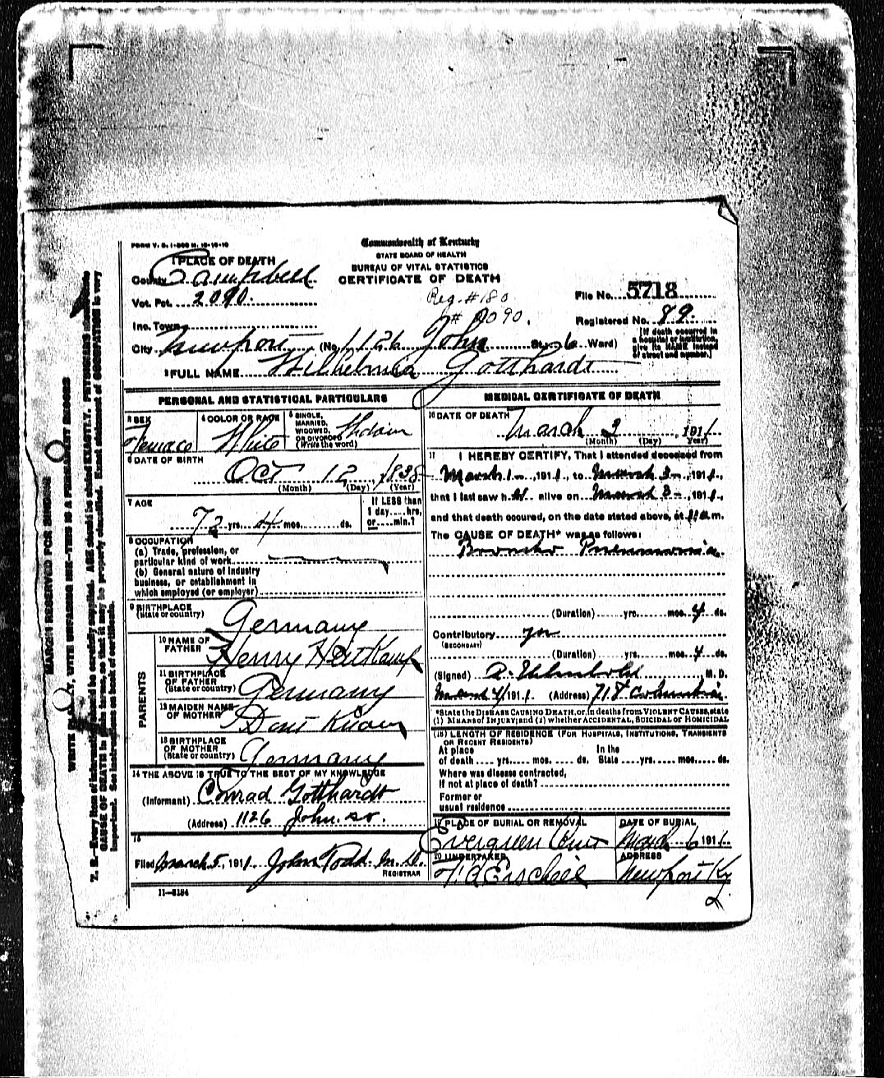 FORM V. S. 1-
Commonwealth of Kentucky
STATE BOARD OF HEALTH
BUREAU OF VITAL STATISTICS
CERTIFICATE OF DEATH
1 PLACE OF DEATH
County Campbell
Vot. Pct. 2090
Reg. #180
# 2090.
File No. 5718
Inc. Town
Registered No. 89
City Newport (No. 1126 John St. 6 Ward)
[If death occurred in a hospital or institution, give its NAME instead of street and number.]
2 FULL NAME Wilhelmia Gotthardt
PERSONAL AND STATISTICAL PARTICULARS
3 SEX
4 COLOR OR RACE White
5 SINGLE, MARRIED, WIDOWED, OR DIVORCED (Write the word) Widow
6 DATE OF BIRTH
Oct 12, 1838
(Month) (Day) (Year)
7 AGE
72 yrs. 4 mos. ds.
If LESS than 1 day....hrs. or....min.?
8 OCCUPATION
(a) Trade, profession, or particular kind of work
(b) General nature of industry business, or establishment in which employed (or employer)
9 BIRTHPLACE
(State or country) Germany
PARENTS
10 NAME OF FATHER Henry
11 BIRTHPLACE OF FATHER
(State or country) Germany
12 MAIDEN NAME OF MOTHER Dont Know
13 BIRTHPLACE OF MOTHER
(State or country) Germany
14 THE ABOVE IS TRUE TO THE BEST OF MY KNOWLEDGE
(Informant) Conrad Gotthardt
(Address) 1126 John. St.
15
Filed March 5, 1911. John Todd M. D.
REGISTRAR
11-3184
MEDICAL CERTIFICATE OF DEATH
16 DATE OF DEATH
March 3 1911
(Month) (Day) Year)
17 I HEREBY CERTIFY, That I attended deceased from
March 1-, 1911, to March 3-, 1911,
that I last saw h er alive on March 3-, 1911,
and that death occured, on the date stated above, at m.
The CAUSE OF DEATH* was as follows:
Broncho Pneumonia
(Duration) yrs. mos. 4 ds.
Contributory
(SECONDARY)
(Duration) yrs. mos. 4 ds.
(Signed) M. D.
March 4, 1911. (Address) 718 Columbia
*State the DISEASE CAUSING DEATH, or, in deaths from VIOLENT CAUSES, state (1) MEANS OF INJURY; and (2) whether ACCIDENTAL, SUICIDAL OR HOMICIDAL
(18) LENGTH OF RESIDENCE (FOR HOSPITALS, INSTITUTIONS, TRANSIENTS OR RECENT RESIDENTS)
At place of death yrs. mos. ds. In the State yrs. mos. ds.
Where was disease contracted, if not at place of death?
Former or usual residence
19 PLACE OF BURIAL OR REMOVAL
Evergreen Cem
DATE OF BURIAL
March 6 1911
20 UNDERTAKER
ADDRESS
Newport Ky
MARGIN RESERVED FOR BINDING